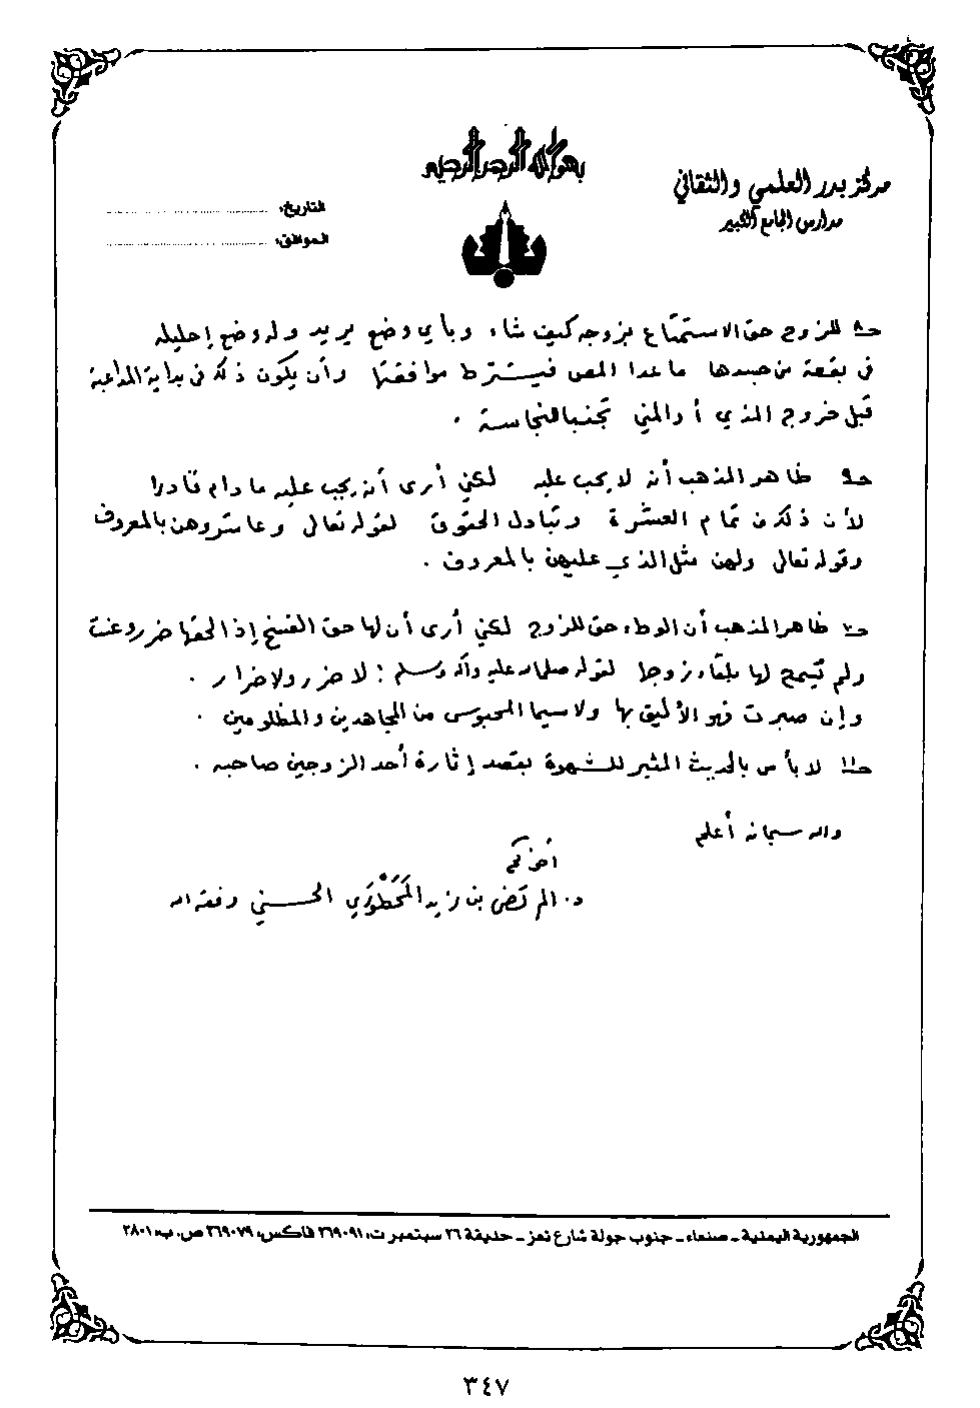 بسم الله الرحمن الرحيم
مركز بدر العلمي والثقافي
مدارس الجامع الكبير
التاريخ:
الموافق:
جـ٨ للزوج حق الاستمتاع بزوجه كيف شاء وبأي وضع يريد وله وضع إحليله
في بقعة من جسدها ماعدا المص فيشترط موافقتها وأن يكون ذلك في بداية المداعبة
قبل خروج المذي أو المني تجنبا للنجاسة .
جـ٩ ظاهر المذهب أنه لا يجب عليه لكني أرى أنه يجب عليه مادام قادرا
لأن ذلك من تمام العشرة وتبادل الحقوق لقوله تعالى وعاشروهن بالمعروف
وقوله تعالى ولهن مثل الذي عليهن بالمعروف .
جـ١٠ ظاهر المذهب أن الوطء حق للزوج لكني أرى أن لها حق الفسخ إذا لحقها ضرر وعنت
ولم يسمح لها بلقاء زوجها لقوله صلى الله عليه وآله وسلم : لا ضرر ولا ضرار .
وإن صبرت فهو الأليق بها ولاسيما المحبوس من المجاهدين والمظلومين .
جـ١١ لا بأس بالحديث المثير للشهوة بقصد إثارة أحد الزوجين صاحبه .
والله سبحانه أعلم
أخوكم
د. المرتضى بن زيد المَحَطْوَري الحسني وفقه الله
الجمهورية اليمنية - صنعاء - جنوب جولة شارع تعز - حديقة ٢٦ سبتمبر ت: ٢٦٩٠٩١ فاكس: ٢٦٩٠٧٩ ص. ب: ٢٨٠١
٣٤٧